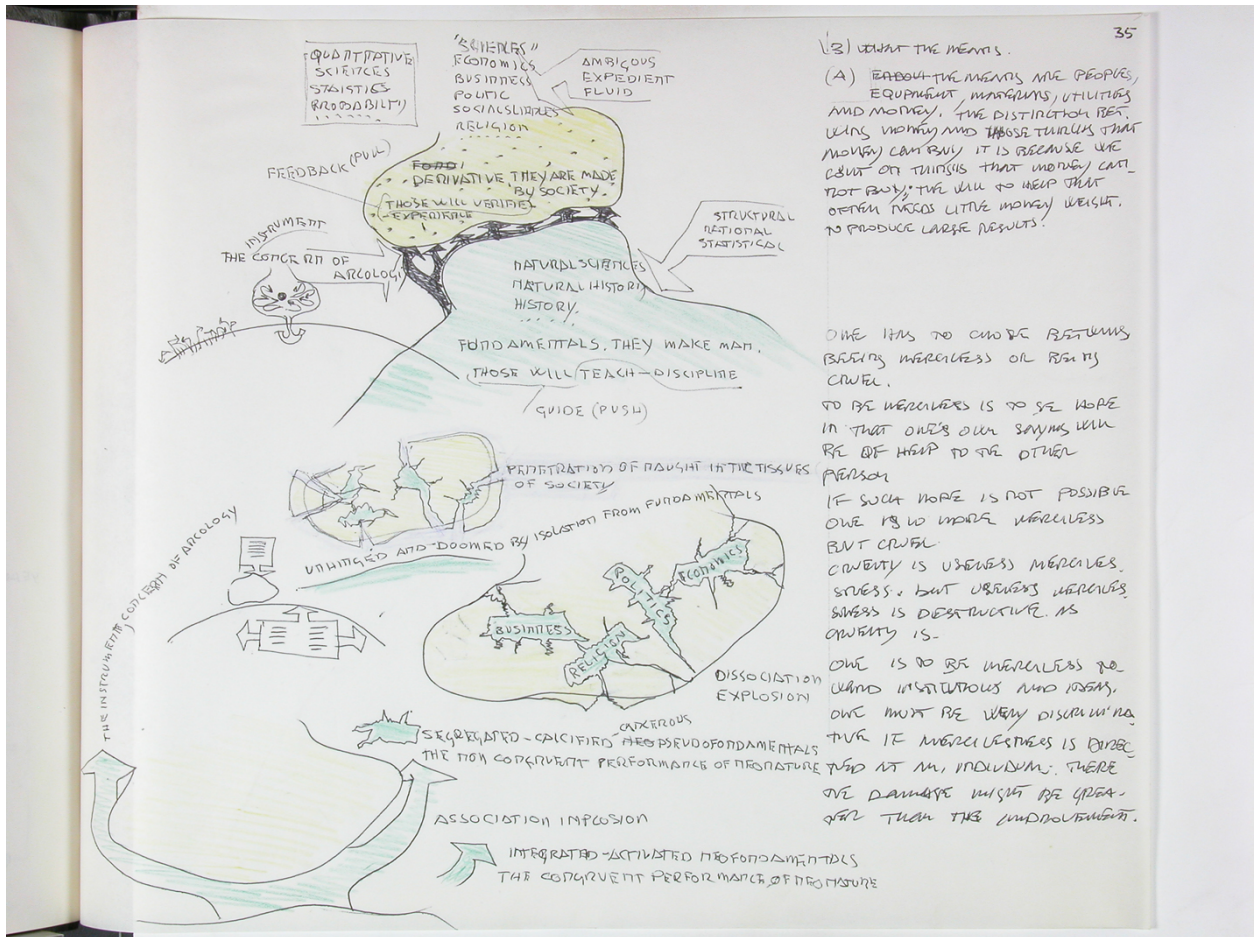 35
QUANTITATIVE
SCIENCES
STATISTIES
PROBABILITY
"SCIENCES"
ECONOMICS
BUSINNESS
POLITIC
RELIGION
AMBIGOUS
EXPEDIENT
FLUID
FEEDBACK (PULL)
DERIVATIVE THEY ARE MADE
BY SOCIETY.
THOSE WILL VERIFIE
-EXPERIENCE
INSTRUMENT
THE CONCERN OF
ARCOLOGI
STRUCTURAL
RATIONAL
STATISTICAL
NATURAL SCIENCES
NATURAL HISTORY
HISTORY.
FONDAMENTALS. THEY MAKE MAN.
THOSE WILL TEACH-DISCIPLINE
GUIDE (PUSH)
PENETRATION OF NAUGHT IN THE TISSUES
OF SOCIETY
UNHINGED AND-DOOMED BY ISOLATION FROM FUNDAMENTALS
THE INSTRUMENT, CONCERN OF ARCOLOGY
BUSINNESS
RELIGION
POLITICS
ECONOMICS
DISSOCIATION
EXPLOSION
CANXEROUS
SEGREGATED-CALCIFIED-NEO PSEUDOFONDAMENTALS
THE NON CONGRUENT PERFORMANCE OF NEONATURE
ASSOCIATION IMPLOSION
INTEGRATED-ACTIVATED NEOFONDAMENTALS
THE CONGRUENT PERFORMANCE OF NEONATURE
(3) WHAT THE MEANS.
(A) THE MEANS ARE PEOPLES,
EQUIPMENT, MATERIALS, UTILITIES
AND MONEY. THE DISTINCTION BET.
MONEY AND THOSE THINGS THAT
MONEY CAN BUY IT IS BECAUSE WE
COUNT ON THINGS THAT MONEY CAN
NOT BUY; "THE WILL TO HELP THAT
OFTEN NEEDS LITTLE MONEY WEIGHT.
TO PRODUCE LARGE RESULTS.
ONE HAS TO CHOSE BETWEENS
BEEING MERCILESS OR BEING
CRUEL.
TO BE MERCILESS IS TO SE HOPE
IN THAT ONE'S OWN SAYING WILL
BE OF HELP TO THE OTHER
PERSON
IF SUCH HOPE IS NOT POSSIBLE
ONE IS NO MORE MERCILESS
BUT CRUEL.
CRUELTY IS USELESS MERCILES.
SNESS. BUT USELESS MERCILES.
SNESS IS DESTRUCTIVE. AS
CRUELTY IS.
ONE IS TO BE MERCILESS TO
WARD INSTITUTIONS AND IDEAS.
ONE MUST BE VERY DISCRIMINA
TIVE IF MERCILESNESS IS DIREC
TED AT AN, INDIVIDUAL: THERE
THE DAMAGE MIGHT BE GREA-
TER THAN THE IMPROVEMENT.